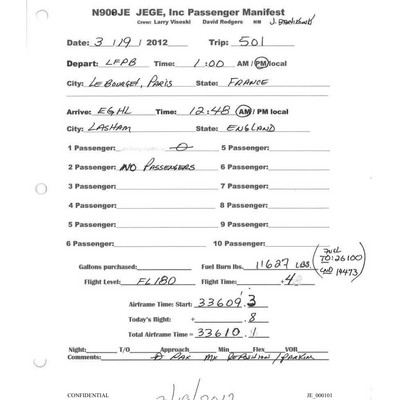 N900JE JEGE, Inc Passenger Manifest
Crew: Larry Visoski David Rodgers
Date: 3 / 19 / 2012 Trip: 501
Depart: LFPB Time: 1:00 AM / PM local
City: LE BOURGET, PARIS State: FRANCE
Arrive: EGHL Time: 12:48 AM / PM local
City: LASHAM State: ENGLAND
1 Passenger: 0 5 Passenger:
2 Passenger: NO PASSENGERS 6 Passenger:
3 Passenger: 7 Passenger:
4 Passenger: 8 Passenger:
5 Passenger: 9 Passenger:
6 Passenger: 10 Passenger:
Gallons purchased: Fuel Burn lbs. 11627 LBS. (FUEL TO: 26100 LND 14473)
Flight Level: FL180 Flight Time: +4
Airframe Time: Start: 33609.3
Today's flight: + .8
Total Airframe Time = 33610.1
Night: T/O Approach Min Flex VOR
Comments: MX
CONFIDENTIAL JE_000101